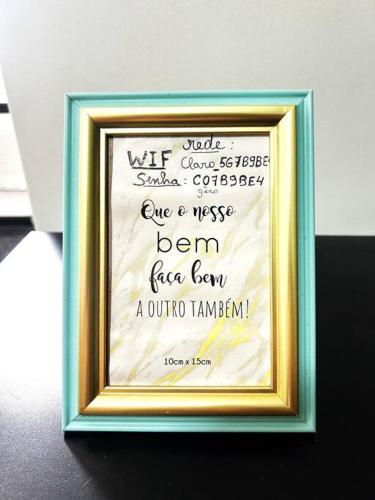 rede:
WIF Claro_5G7B9BE
Senha: C07B9BE4
gero
Que o nosso
bem
faça bem
A OUTRO TAMBÉM!
10cm x 15cm